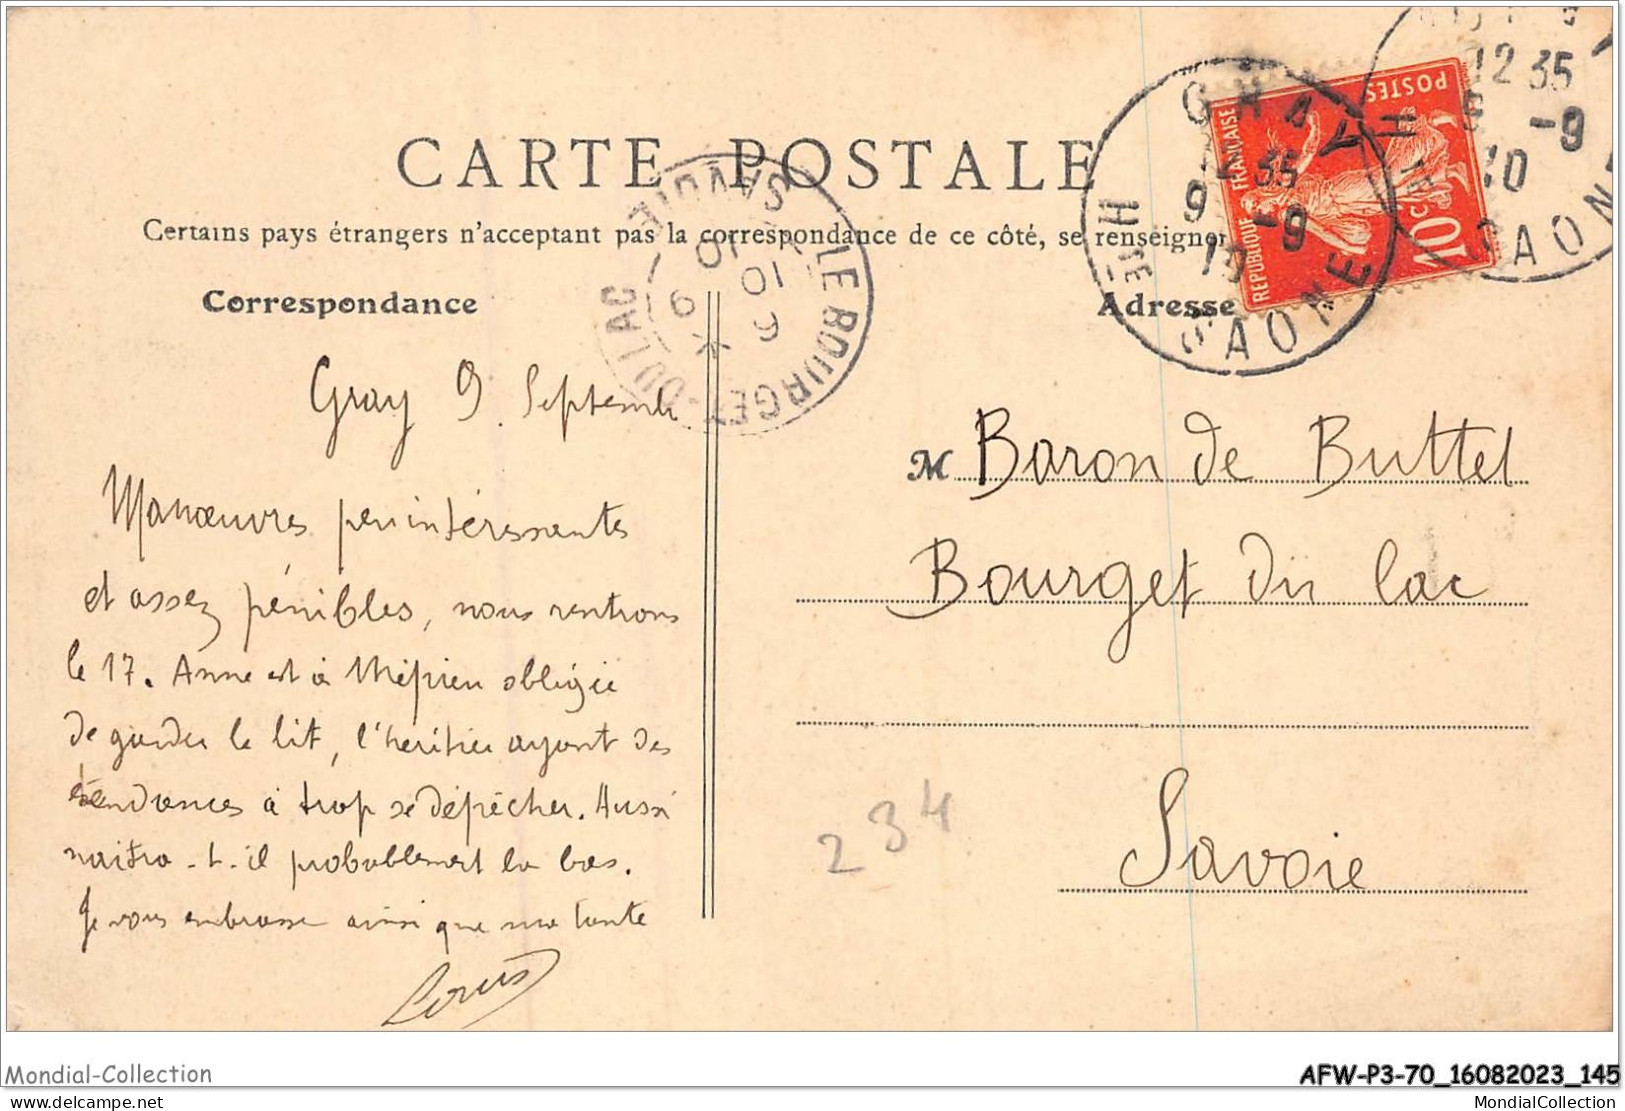 CARTE POSTALE
Certains pays étrangers n'acceptent pas la correspondance de ce côté, se renseigner
Correspondance
Adresse
GRAY
12 35
9 -9
10
Hte SAONE
12 35
-9
10
SAONE
LE BOURGET-DU LAC
SAVOIE
10
10 9
9
REPUBLIQUE FRANÇAISE
POSTES
10c
Gray 9 Septembre
Manœuvres peu intéressantes
et assez pénibles, nous rentrons
le 17. Anne est à Mépieu obligée
de garder le lit, l'héritier ayant des
tendances à trop se dépêcher. Aussi
naitra-t-il probablement la bas.
Je vous embrasse ainsi que ma tante
Louis
M Baron de Buttet
Bourget du lac
Savoie
234
Mondial-Collection
AFW-P3-70_16082023_145
delcampe.net
MondialCollection